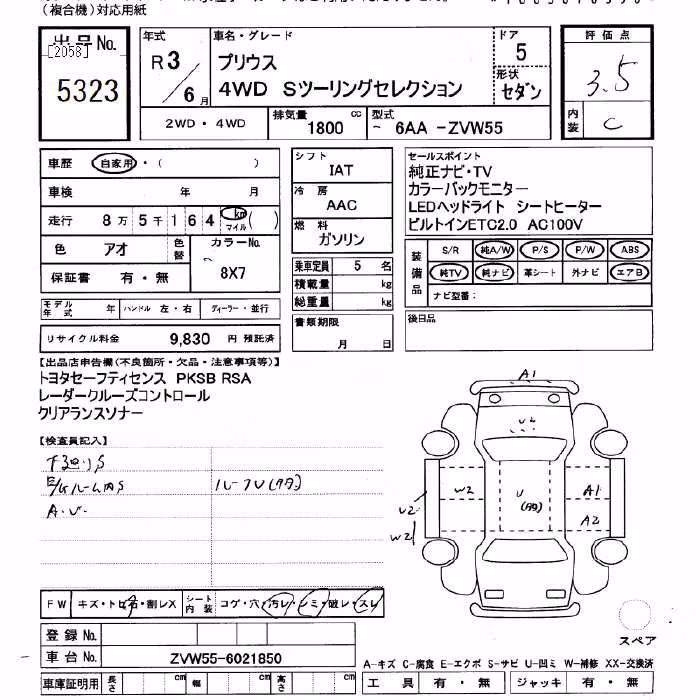 （複合機）対応用紙
出品No.
[2058]
5323
年式
R 3
/ 6 月
車名・グレード
プリウス
4WD Sツーリングセレクション
ドア
5
形状
セダン
評価点
3.5
内装
C
2WD・4WD
排気量
1800 cc
型式
~ 6AA -ZVW55
車歴 自家用・( )
車検 年 月
走行 8万5千164 km マイル ( )
色 アオ 色替
カラーNo.
8X7
保証書 有・無
モデル年式 年 ハンドル 左・右 ディーラー・並行
リサイクル料金 9,830 円 預託済
シフト
IAT
冷房
AAC
燃料
ガソリン
乗車定員 5 名
積載量 kg
総重量 kg
書類期限
月 日
セールスポイント
純正ナビ・TV
カラーバックモニター
LEDヘッドライト シートヒーター
ビルトインETC2.0 AC100V
装備品
S/R 純A/W P/S P/W ABS
純TV 純ナビ 革シート 外ナビ エアB
ナビ型番：
後日品
【出品店申告欄(不良箇所・欠品・注意事項等)】
トヨタセーフティセンス PKSB RSA
レーダークルーズコントロール
クリアランスソナー
【検査員記入】
下廻りS
E/Gルーム内S
A.U.
ルーフU(タタ)
A1
U4
W2
U
(タタ)
A1
A2
U2
W2
FW キズ・トビ石・割レX
シート内装 コゲ・穴・汚レ・シミ・破レ・スレ
スペア
登録No.
車台No. ZVW55-6021850
車庫証明用 長さ cm 幅 cm 高さ cm
A-キズ C-腐食 E-エクボ S-サビ U-凹ミ W-補修 XX-交換済
工具 有・無 ジャッキ 有・無